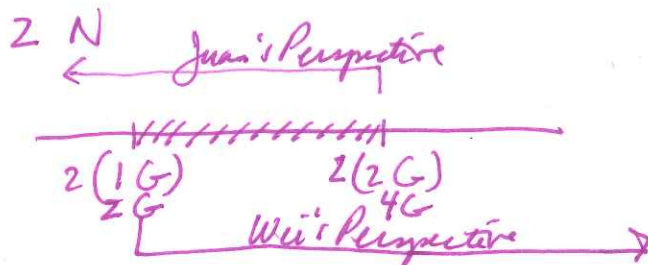 2 N
Juan's Perspective
2(1G) 2(2G)
2G 4G
Wei's Perspective